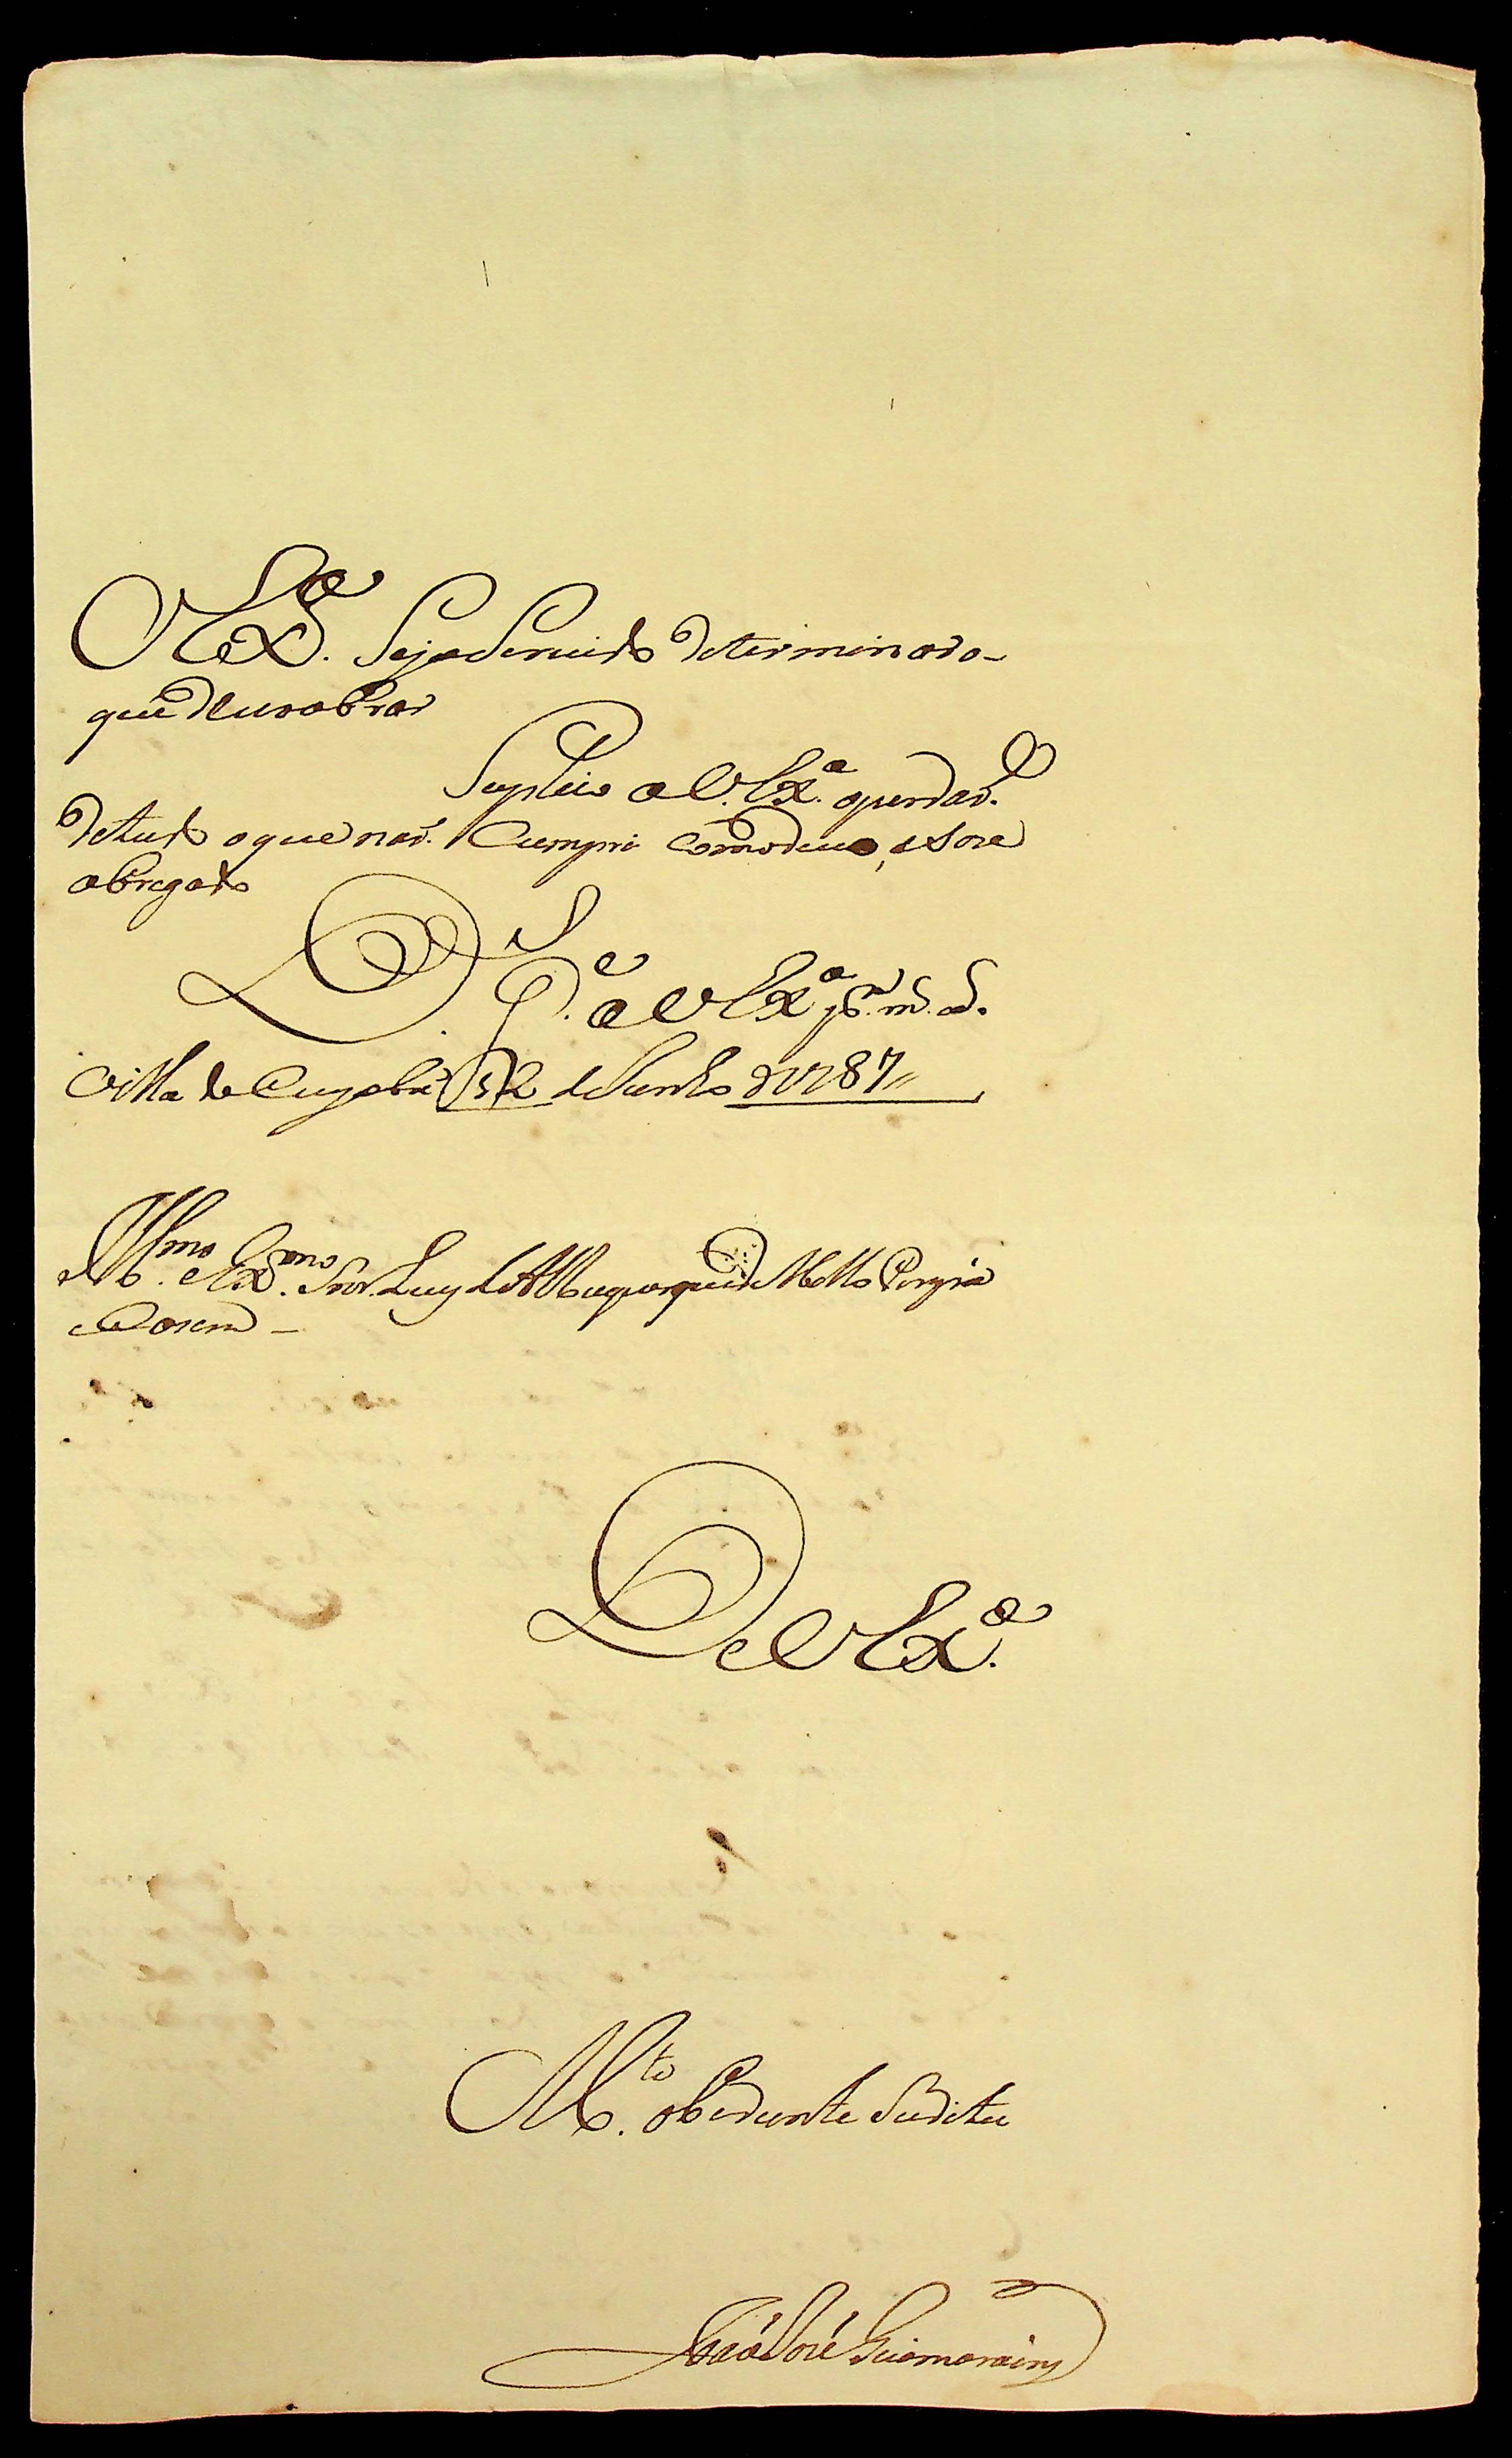 VEx.ª Seja Seruido determinar o
que deuo obrar
Suplico a V. Ex.ª o perdaõ.
de tudo o que naõ. Cumpri como deuo, e Sou
obrigado
D.s G.e a V Ex.ª m.s a.s
Villa do Cuyabá 12 de Junho de 1787
Ill.mo e Ex.mo Snor. Luiz de Albuquerque de Mello Pereira
e Caseres
De V Ex.ª
M.to obediente Sudito
João José Guimaraens